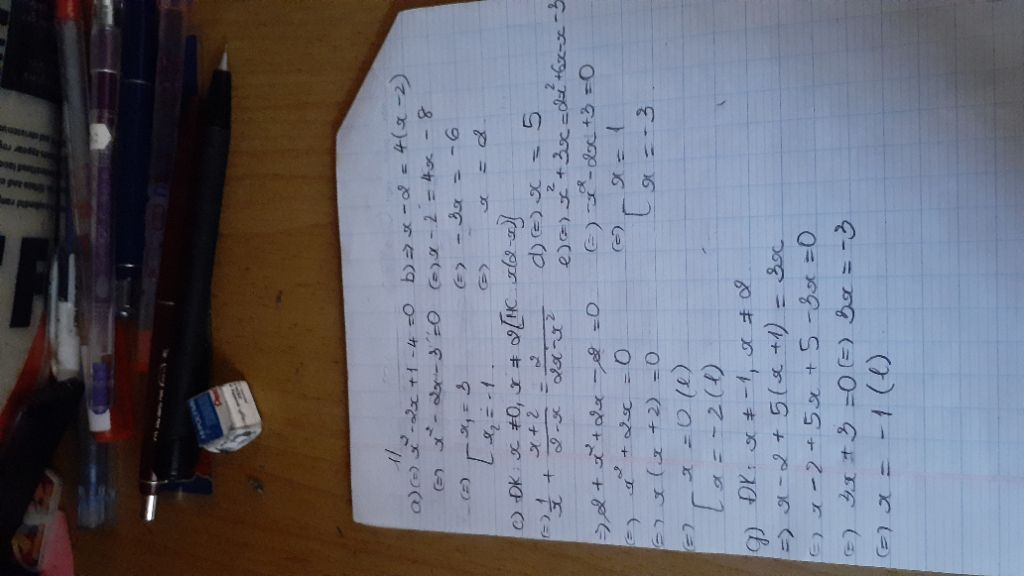 1/
a) (=) x² - 2x + 1 - 4 = 0
(=) x² - 2x - 3 = 0
(=) [ x₁ = 3
x₂ = -1
b) => x - 2 = 4(x - 2)
(=) x - 2 = 4x - 8
(=) -3x = -6
(=) x = 2
c) ĐK: x ≠ 0, x ≠ 2 [ x(2-x)]
(=) 1/x + (x+2)/(2-x) = 2/(2x-x²)
=> 2 + x² + 2x - 2 = 0
(=) x² + 2x = 0
(=) x(x+2) = 0
(=) [ x = 0 (l)
x = -2 (l)
d) (=) x = 5
e) (=) x² + 3x = 2x² + 6x - x - 3
(=) -x² - 2x + 3 = 0
(=) [ x = 1
x = -3
g) ĐK: x ≠ -1, x ≠ 2
=> x - 2 + 5(x+1) = 3x
(=) x - 2 + 5x + 5 - 3x = 0
(=) 3x + 3 = 0 (=) 3x = -3
(=) x = -1 (l)